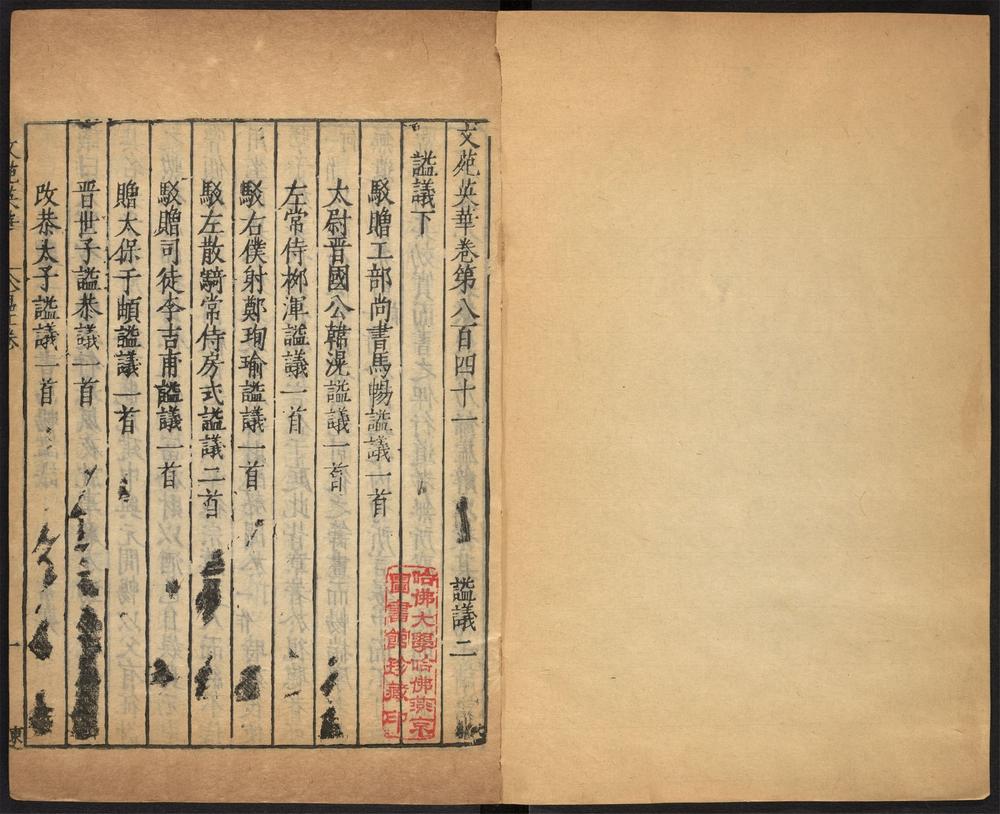 文苑英華卷第八百四十一 謚議二
謚議下
駁贈工部尚書馬暢謚議一首
太尉晋國公韓滉謚議一首
左常侍栁渾謚議一首
駁右僕射鄭珣瑜謚議一首
駁左散騎常侍房式謚議二首
駁贈司徒李吉甫謚議一首
贈太保于頔謚議一首
晋世子謚恭議一首
改恭太子謚議一首
文苑英華
一
哈佛大學哈佛燕京
圖書館珍藏印